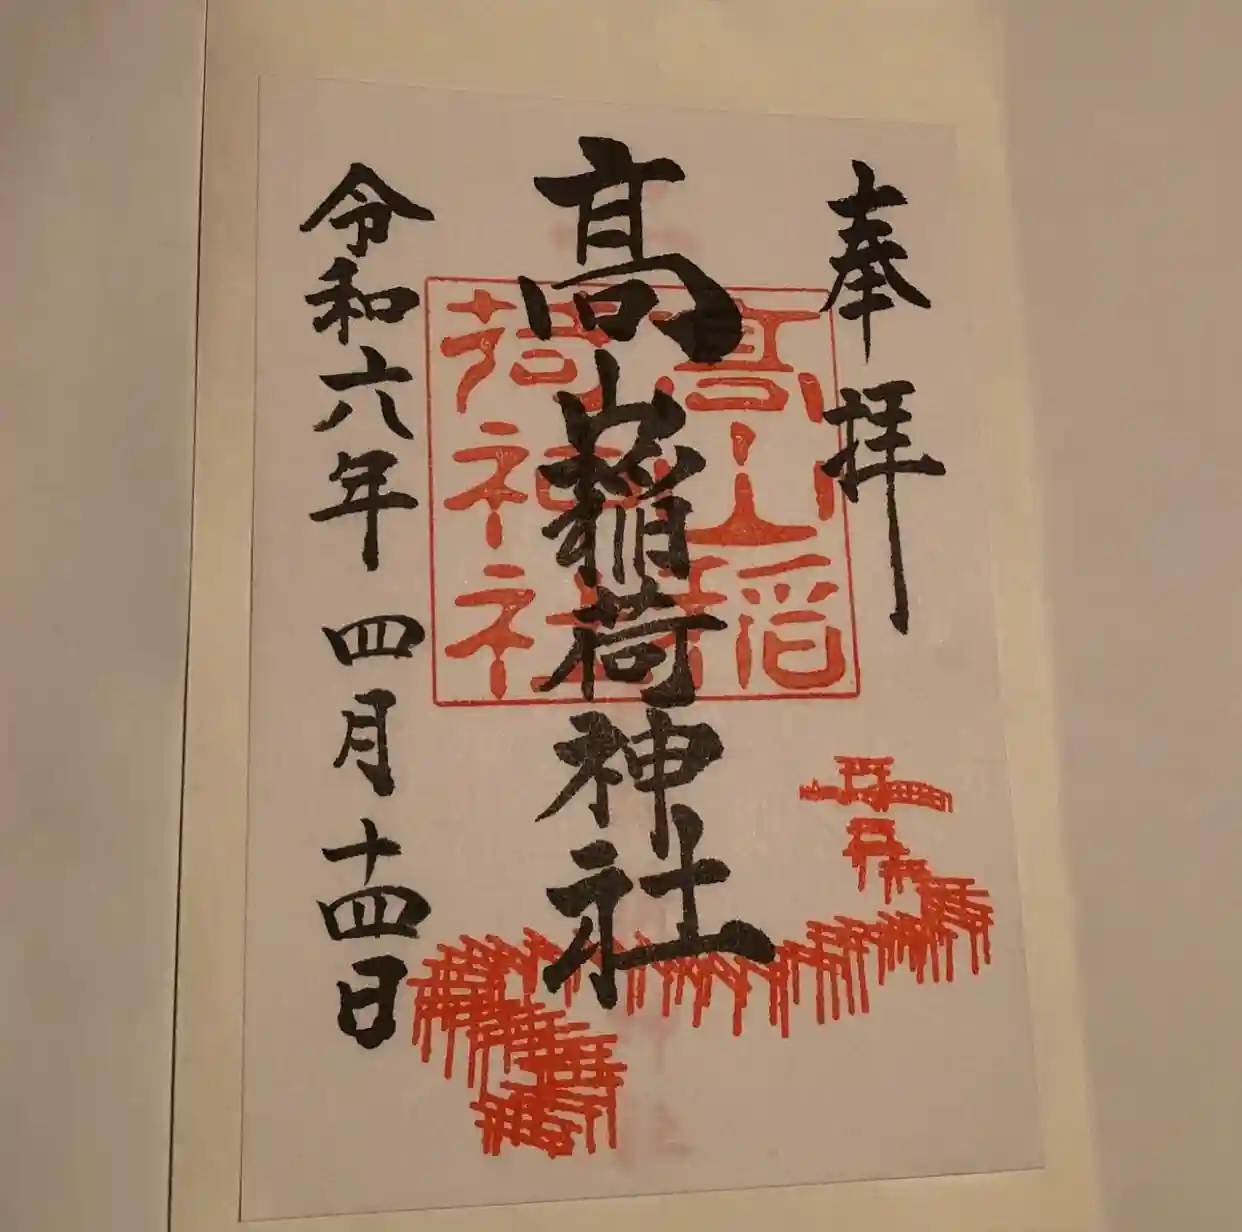 奉拝
髙山稲荷神社
髙山稲
荷神社
令和六年 四月 十四日